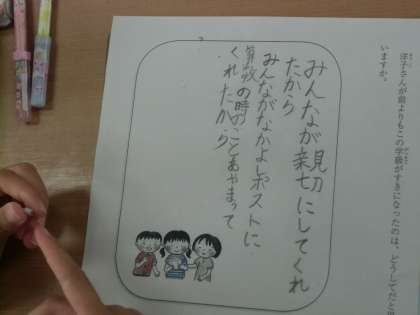 洋子さんが前よりもこの学級がすきになったのは、どうしてだと
いますか。
みんなが親切にしてくれ
たから
みんながなかよしポストに
算数の時のことあやまって
くれたから